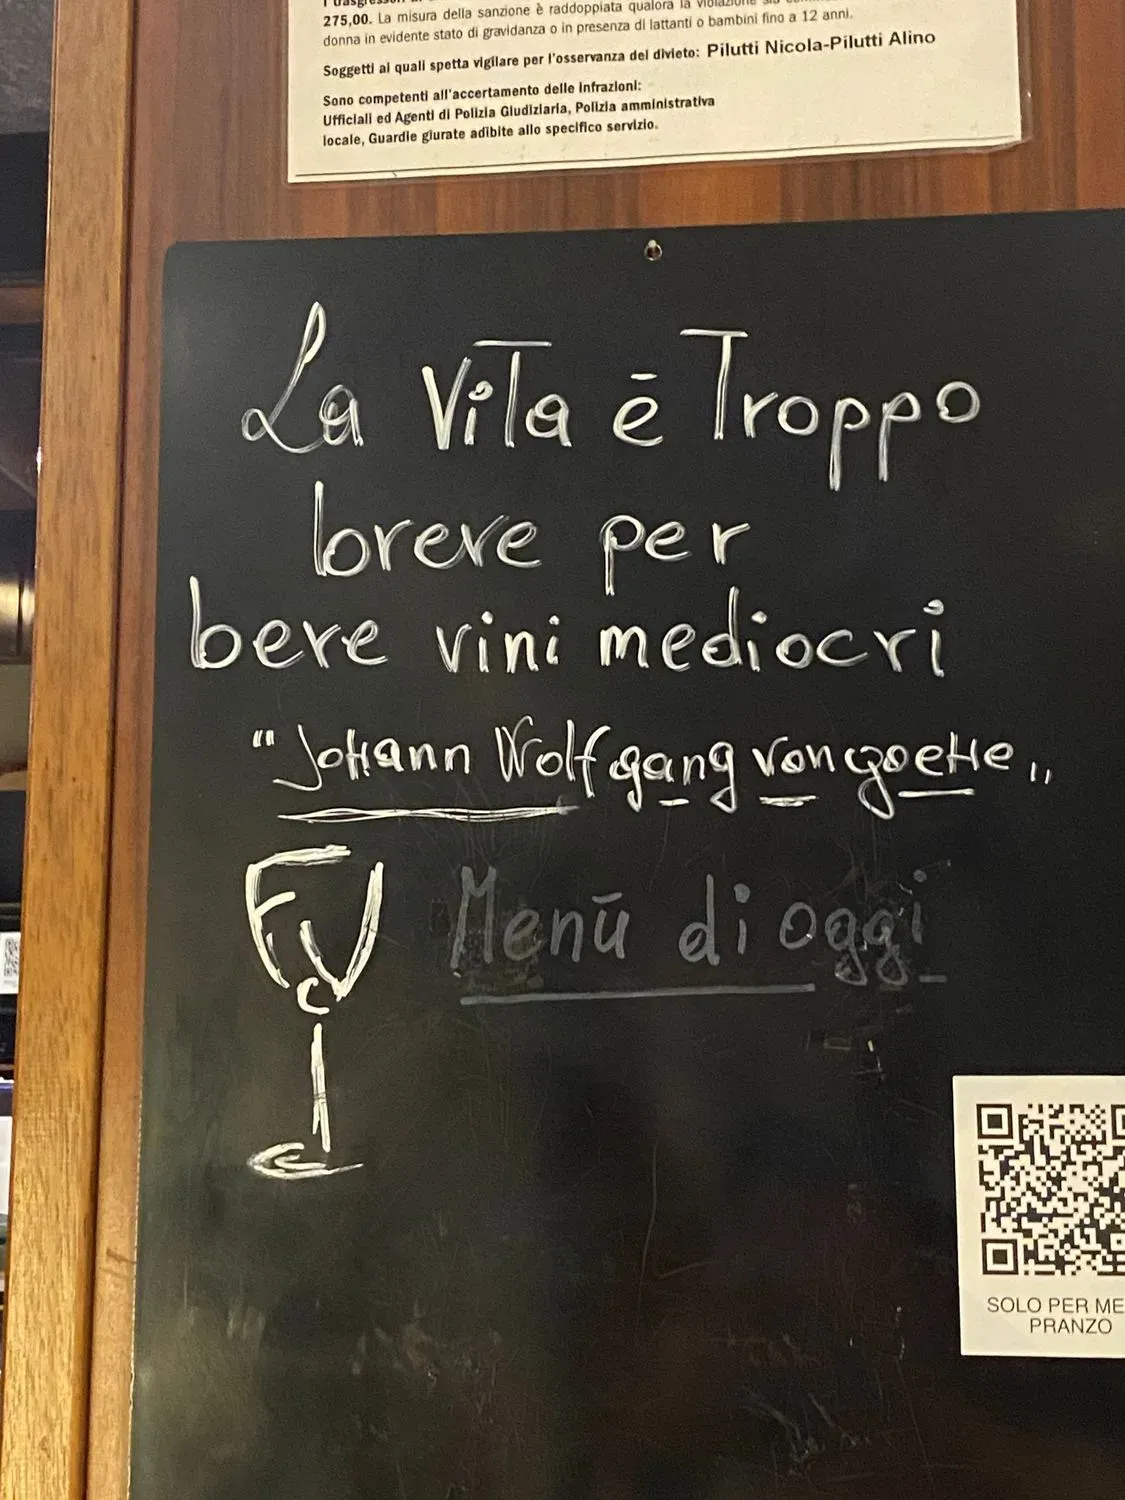 275,00. La misura della sanzione è raddoppiata qualora la violazione sia
donna in evidente stato di gravidanza o in presenza di lattanti o bambini fino a 12 anni.
Soggetti ai quali spetta vigilare per l'osservanza del divieto: Pilutti Nicola-Pilutti Alino
Sono competenti all'accertamento delle infrazioni:
Ufficiali ed Agenti di Polizia Giudiziaria, Polizia amministrativa
locale, Guardie giurate adibite allo specifico servizio.
La Vita ē Troppo
breve per
bere vini mediocri
"Johann Wolfgang von goethe„
Menū di oggi
SOLO PER ME
PRANZO